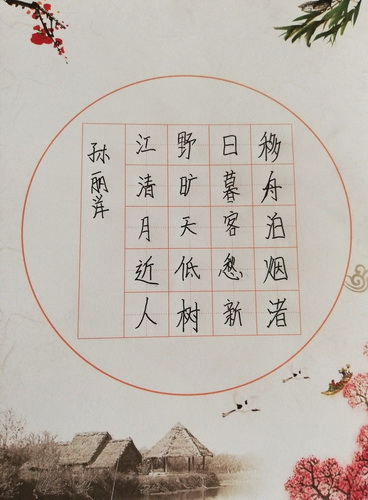 移舟泊烟渚
日暮客愁新
野旷天低树
江清月近人
孙丽萍